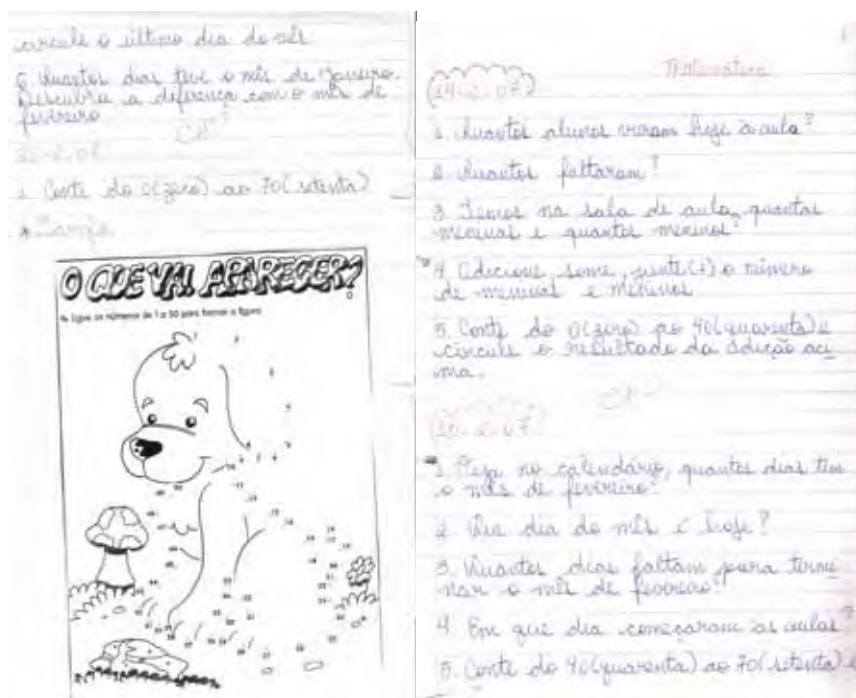 circule o último dia do mês
6. Quantos dias teve o mês de Janeiro.
Descubra a diferença com o mês de
fevereiro
1. Conte do 0(zero) ao 70(setenta)
O QUE VAI APARECER?
Ligue os números de 1 a 50 para formar a figura.
Matemática
1. Quantos alunos vieram hoje à aula?
2. Quantos faltaram?
3. Temos na sala de aula, quantas
meninas e quantos meninos?
4. Adicione, some, junte (+) o número
de meninas e meninos
5. Conte do 0(zero) ao 40(quarenta) e
circule o resultado da adição aci
ma.
1. Veja no calendário, quantos dias tem
o mês de fevereiro?
2. Que dia do mês é hoje?
3. Quantos dias faltam para termi
nar o mês de fevereiro?
4. Em que dia começaram as aulas?
5. Conte do 40(quarenta) ao 70(setenta) e